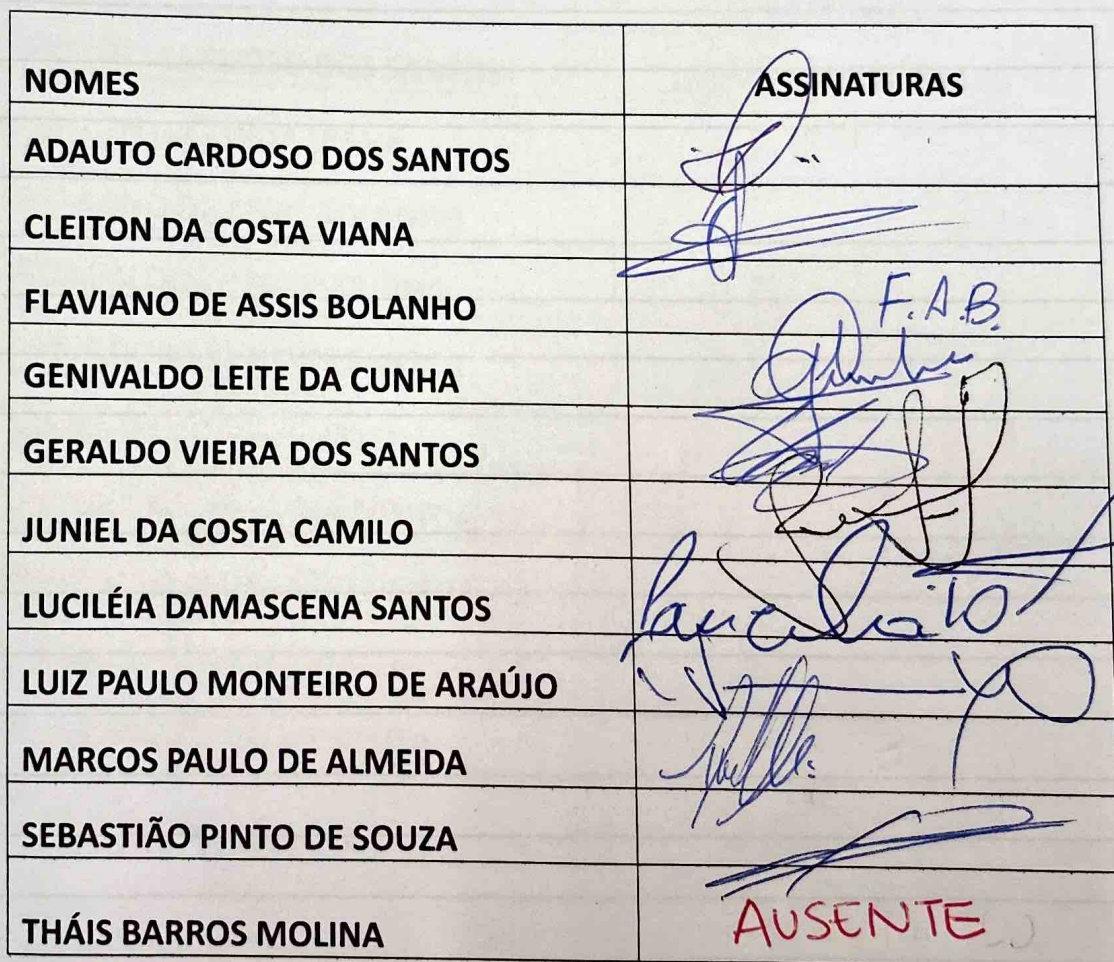 NOMES ASSINATURAS
ADAUTO CARDOSO DOS SANTOS
CLEITON DA COSTA VIANA
FLAVIANO DE ASSIS BOLANHO F.A.B.
GENIVALDO LEITE DA CUNHA
GERALDO VIEIRA DOS SANTOS
JUNIEL DA COSTA CAMILO
LUCILÉIA DAMASCENA SANTOS
LUIZ PAULO MONTEIRO DE ARAÚJO
MARCOS PAULO DE ALMEIDA
SEBASTIÃO PINTO DE SOUZA
THÁIS BARROS MOLINA AUSENTE